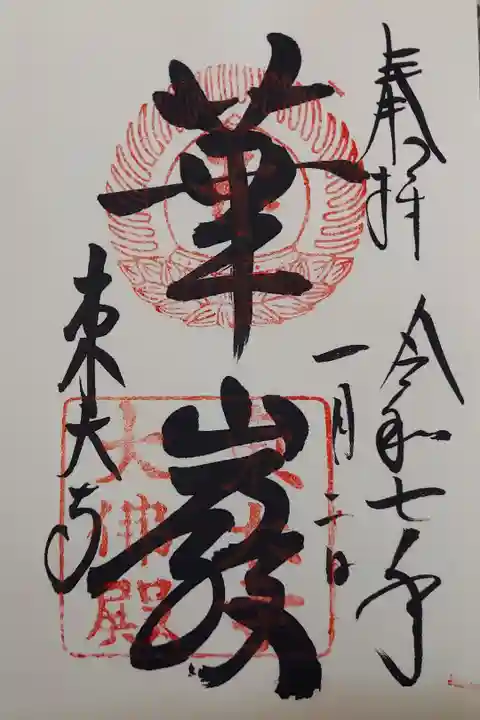 奉拝
令和七年
一月二日
華嚴
東大寺
大佛殿